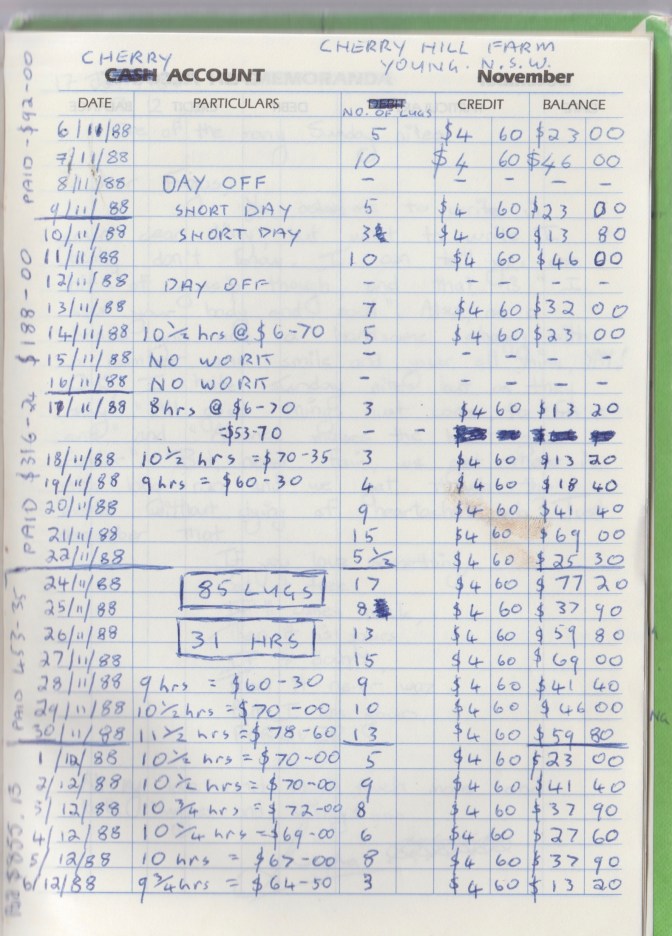 CHERRY CHERRY HILL FARM
YOUNG. N.S.W.
CASH ACCOUNT November
DATE PARTICULARS DEBIT CREDIT BALANCE
NO. OF LUGS
6/11/88 5 $4 60 $23 00
7/11/88 10 $4 60 $46 00
8/11/88 DAY OFF - - - - -
9/11/88 SHORT DAY 5 $4 60 $23 00
10/11/88 SHORT DAY 3 $4 60 $13 80
11/11/88 10 $4 60 $46 00
12/11/88 DAY OFF - - - - -
13/11/88 7 $4 60 $32 00
14/11/88 10 1/2 hrs @ $6-70 5 $4 60 $23 00
15/11/88 NO WORK - - - - -
16/11/88 NO WORK - - - - -
17/11/88 8hrs @ $6-70 3 $4 60 $13 20
=$53-70 - -
18/11/88 10 1/2 hrs = $70-35 3 $4 60 $13 20
19/11/88 9 hrs = $60-30 4 $4 60 $18 40
20/11/88 9 $4 60 $41 40
21/11/88 15 $4 60 $69 00
22/11/88 5 1/2 $4 60 $25 30
24/11/88 85 LUGS 17 $4 60 $77 20
25/11/88 8 $4 60 $37 90
26/11/88 31 HRS 13 $4 60 $59 80
27/11/88 15 $4 60 $69 00
28/11/88 9 hrs = $60-30 9 $4 60 $41 40
29/11/88 10 1/2 hrs = $70-00 10 $4 60 $46 00
30/11/88 11 1/2 hrs = $78-60 13 $4 60 $59 80
1/12/88 10 1/2 hrs = $70-00 5 $4 60 $23 00
2/12/88 10 1/2 hrs = $70-00 9 $4 60 $41 40
3/12/88 10 3/4 hrs = $72-00 8 $4 60 $37 90
4/12/88 10 1/4 hrs = $69-00 6 $4 60 $27 60
5/12/88 10 hrs = $67-00 8 $4 60 $37 90
6/12/88 9 3/4 hrs = $64-50 3 $4 60 $13 20
PAID - $92-00
$188-00
PAID $316-24
PAID 453-35
$855.13